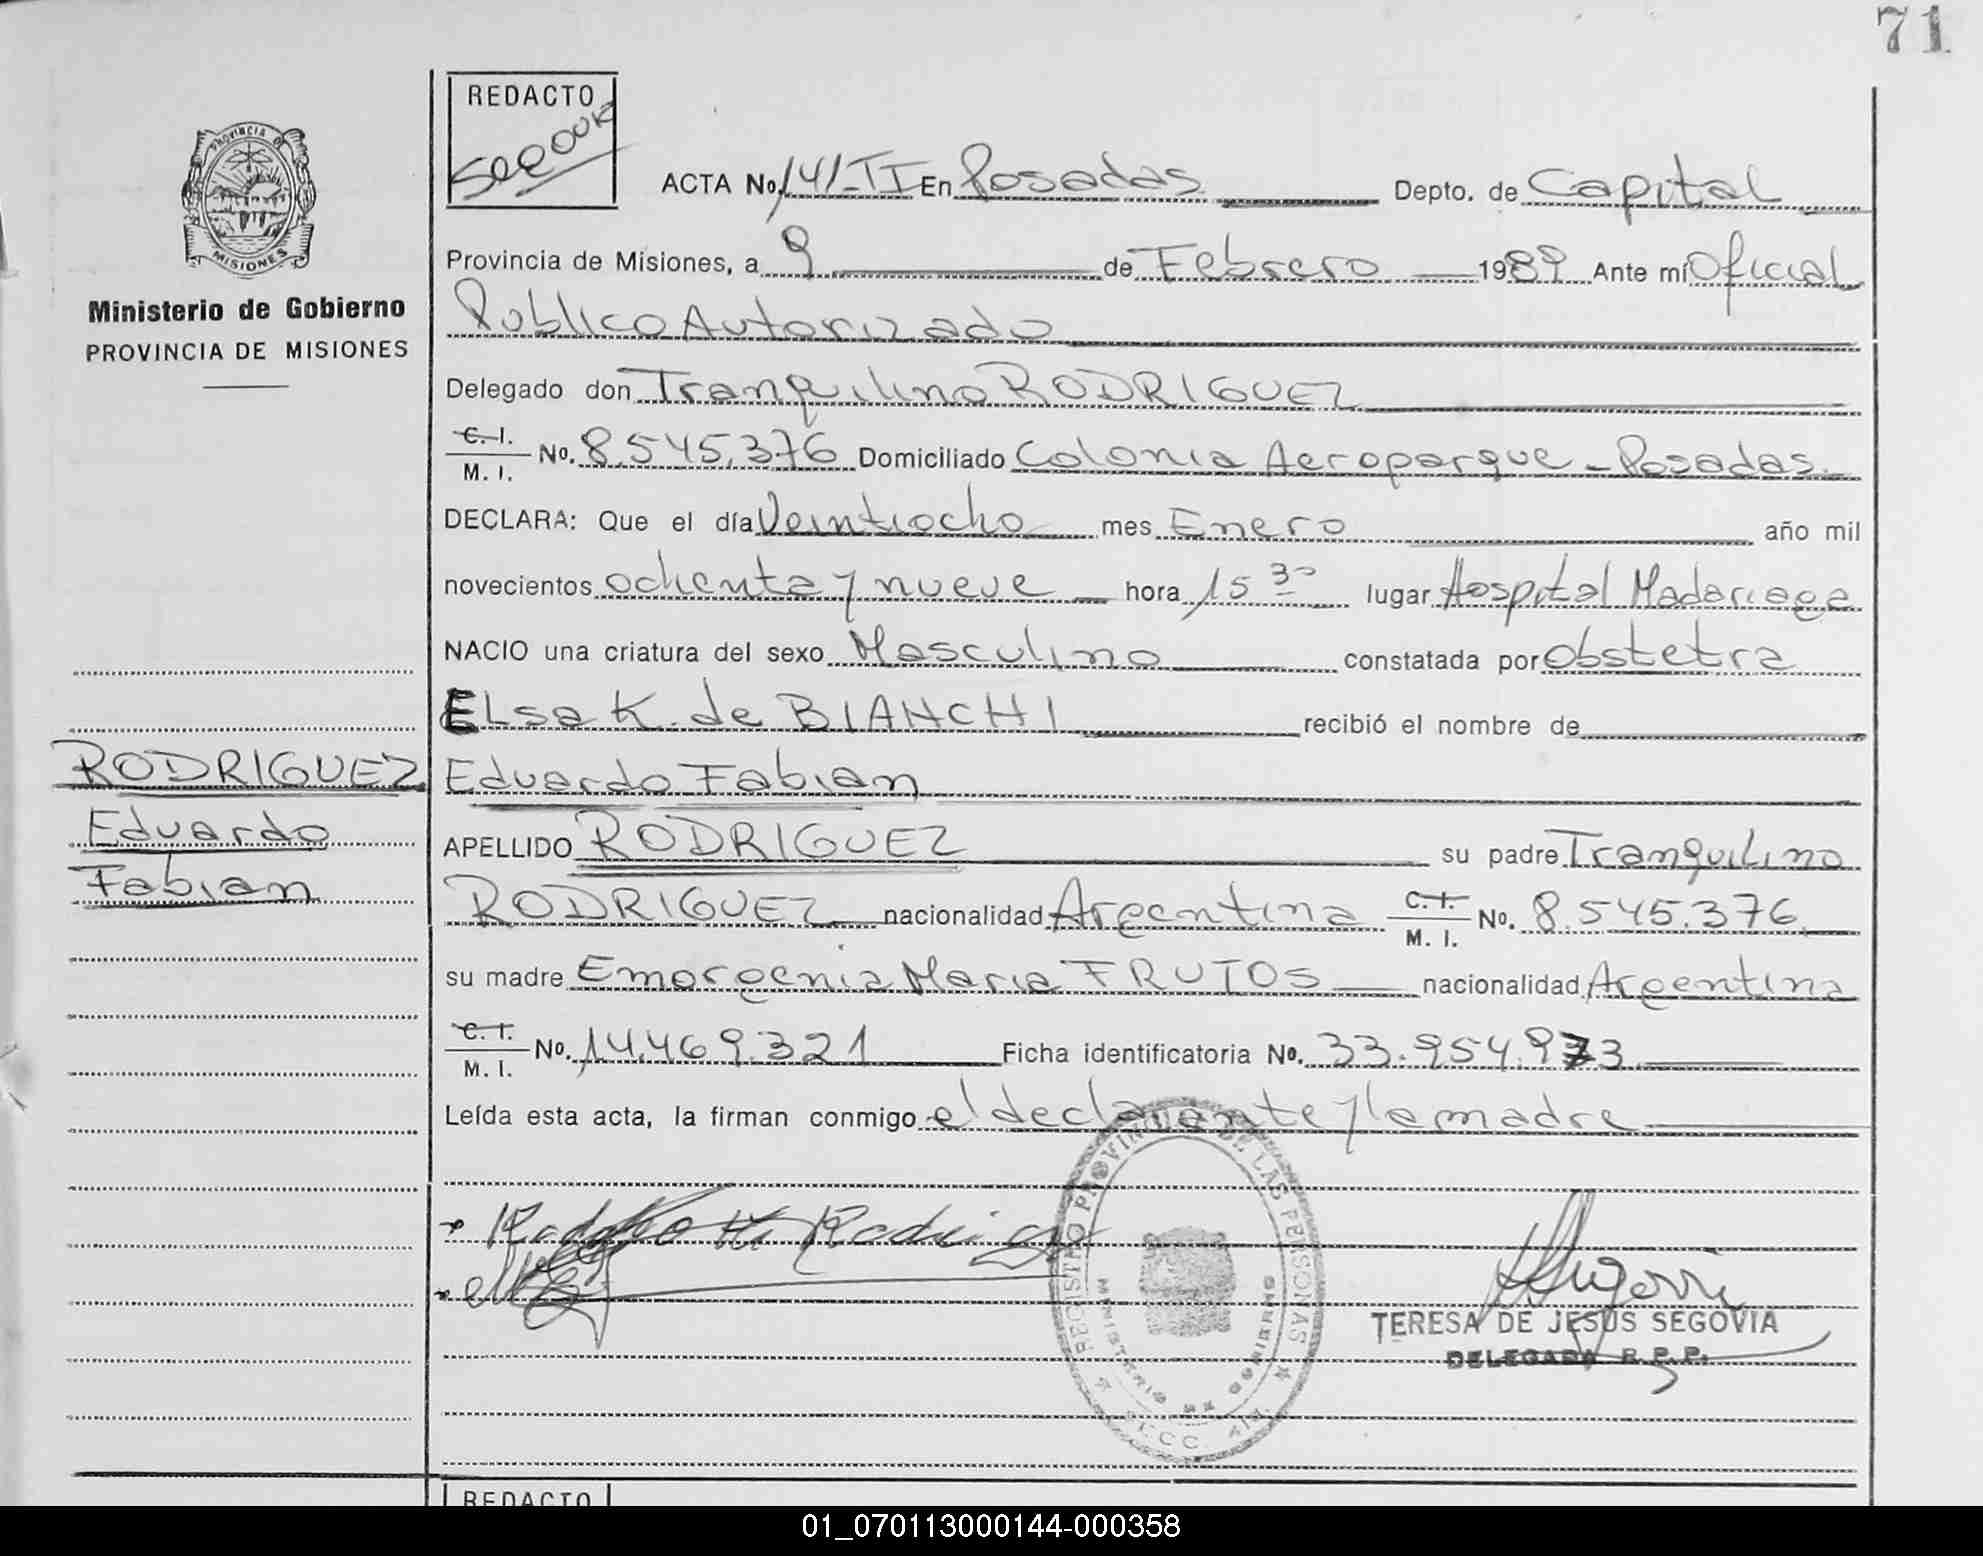 71
REDACTO
ACTA No. 141-II En Posadas Depto. de Capital
PROVINCIA
MISIONES
Provincia de Misiones, a 9 de Febrero 1989 Ante mí Oficial
Ministerio de Gobierno
PROVINCIA DE MISIONES
Publico Autorizado
Delegado don Tranquilino RODRIGUEZ
C. I.
M. I. No. 8.545.376 Domiciliado Colonia Aeroparque - Posadas
DECLARA: Que el día Veintiocho mes Enero año mil
novecientos ochenta y nueve hora 15 30 lugar Hospital Madariaga
NACIO una criatura del sexo Masculino constatada por Obstetra
Elsa K. de BIANCHI recibió el nombre de
RODRIGUEZ
Eduardo
Fabian
Eduardo Fabian
APELLIDO RODRIGUEZ su padre Tranquilino
RODRIGUEZ nacionalidad Argentina C. I. M. I. No. 8.545.376
su madre Emorgenia Maria FRUTOS nacionalidad Argentina
C. I.
M. I. No. 14.469.321 Ficha identificatoria No. 33.954.973
Leída esta acta, la firman conmigo el declarante y la madre
REGISTRO PROVINCIAL DE LAS PERSONAS
MINISTERIO DE GOBIERNO
TERESA DE JESUS SEGOVIA
DELEGADA R. P. P.
REDACTO
01_070113000144-000358